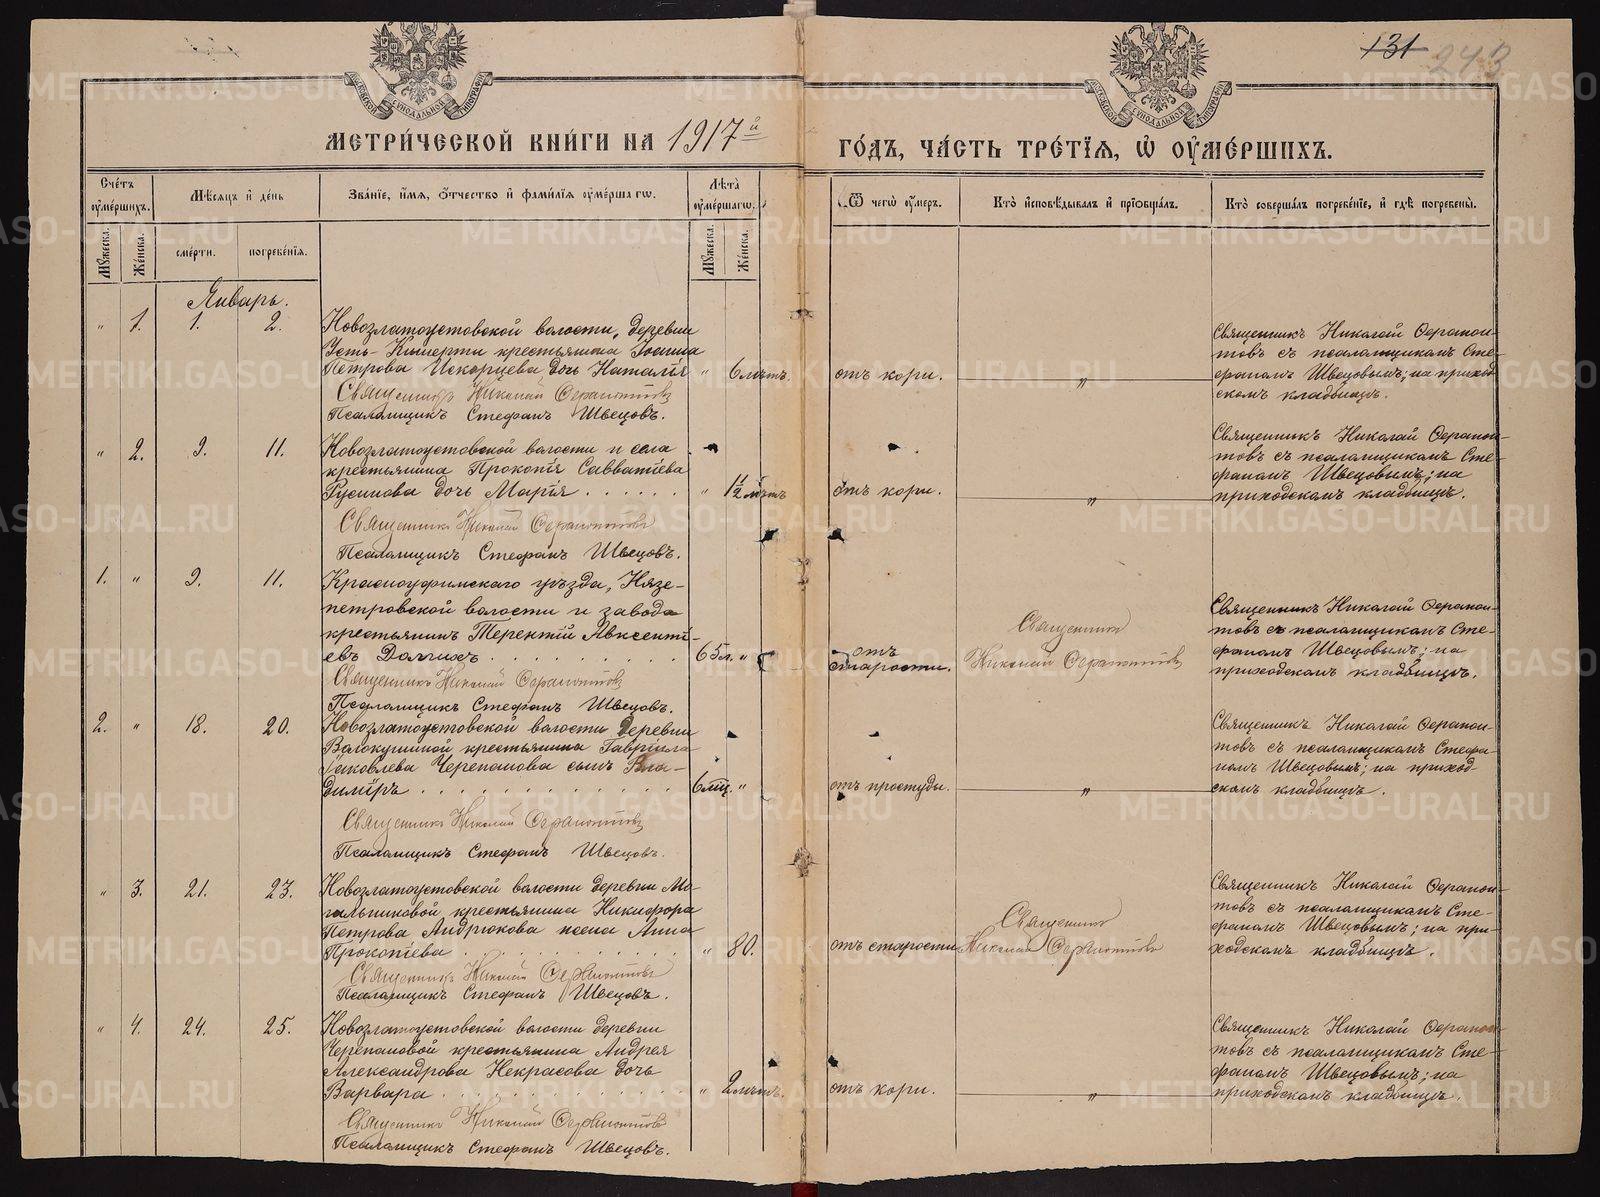 131 243
МЕТРИ́ЧЕСКОЙ КНИ́ГИ НА 1917й ГО́ДЪ, ЧА́СТЬ ТРЕ́ТЇѦ, Ѡ ОУ҆МЕ́РШИХЪ.
Сче́тъ оумершихъ. Мѣсяцъ и день Зва́нїе, и҆́мя, ѻ҆́тчество и҆ фами́лїя оумершагѡ. Лѣта оумершагѡ. Ѿ чегѡ̀ оу҆́меръ. Кто̀ и҆сповѣдывалъ и҆ прїѻбщалъ. Кто̀ соверша́лъ погребе́нїе, и҆ гдѣ̀ погребены̀.
Мужеска. Женска. сме́рти. погребе́нїя. Мужеска. Женска.
Январь.
" 1. 1. 2. Новозлатоустовской волости, деревни
Усть-Кишерти крестьянина Іоанна
Петрова Искорцева дочь Наталія " 6 лѣтъ. отъ кори. "
Священникъ Николай Ферапонтовъ
Псаломщикъ Стефанъ Швецовъ.
Священникъ Николай Ферапон-
товъ съ псаломщикомъ Сте-
фаномъ Швецовымъ; на приход-
скомъ кладбищѣ.
" 2. 9. 11. Новозлатоустовской волости и села
крестьянина Прокопія Савватіева
Русинова дочь Марія . . . . . . " 1½ лѣтъ отъ кори. "
Священникъ Николай Ферапонтовъ
Псаломщикъ Стефанъ Швецовъ.
Священникъ Николай Ферапон-
товъ съ псаломщикомъ Сте-
фаномъ Швецовымъ; на
приходскомъ кладбищѣ.
1. " 9. 11. Красноуфимскаго уѣзда, Нязе-
петровской волости и завода
крестьянинъ Терентій Авксенті-
евъ Долгихъ . . . . . . . . . 65 л. " отъ старости.
Священникъ Николай Ферапонтовъ
Псаломщикъ Стефанъ Швецовъ.
Священникъ
Николай Ферапонтовъ
Священникъ Николай Ферапон-
товъ съ псаломщикомъ Сте-
фаномъ Швецовымъ; на
приходскомъ кладбищѣ.
2. " 18. 20. Новозлатоустовской волости деревни
крестьянина Гавріила
Іаковлева Черепанова сынъ Вла-
диміръ . . . . . . . . . . . . 6 мѣц. " отъ простуды. "
Священникъ Николай Ферапонтовъ
Псаломщикъ Стефанъ Швецовъ.
Священникъ Николай Ферапон-
товъ съ псаломщикомъ Стефа-
номъ Швецовымъ; на приход-
скомъ кладбищѣ.
" 3. 21. 23. Новозлатоустовской волости деревни Мо-
гильниковой крестьянина Никифора
Петрова Андрюкова жена Анна
Прокопіева . . . . . . . . . . " 80. отъ старости
Священникъ Николай Ферапонтовъ
Псаломщикъ Стефанъ Швецовъ.
Священникъ
Николай Ферапонтовъ
Священникъ Николай Ферапон-
товъ съ псаломщикомъ Сте-
фаномъ Швецовымъ; на при-
ходскомъ кладбищѣ.
" 4. 24. 25. Новозлатоустовской волости деревни
Черепановой крестьянина Андрея
Александрова Некрасова дочь
Варвара . . . . . . . . . . . " 2 лѣтъ. отъ кори. "
Священникъ Николай Ферапонтовъ
Псаломщикъ Стефанъ Швецовъ.
Священникъ Николай Ферапон-
товъ съ псаломщикомъ Сте-
фаномъ Швецовымъ; на
приходскомъ кладбищѣ.
METRIKI.GASO-URAL.RU